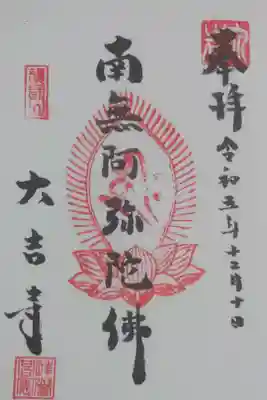 奉拝
令和五年十二月十日
南無阿弥陀佛
大吉寺